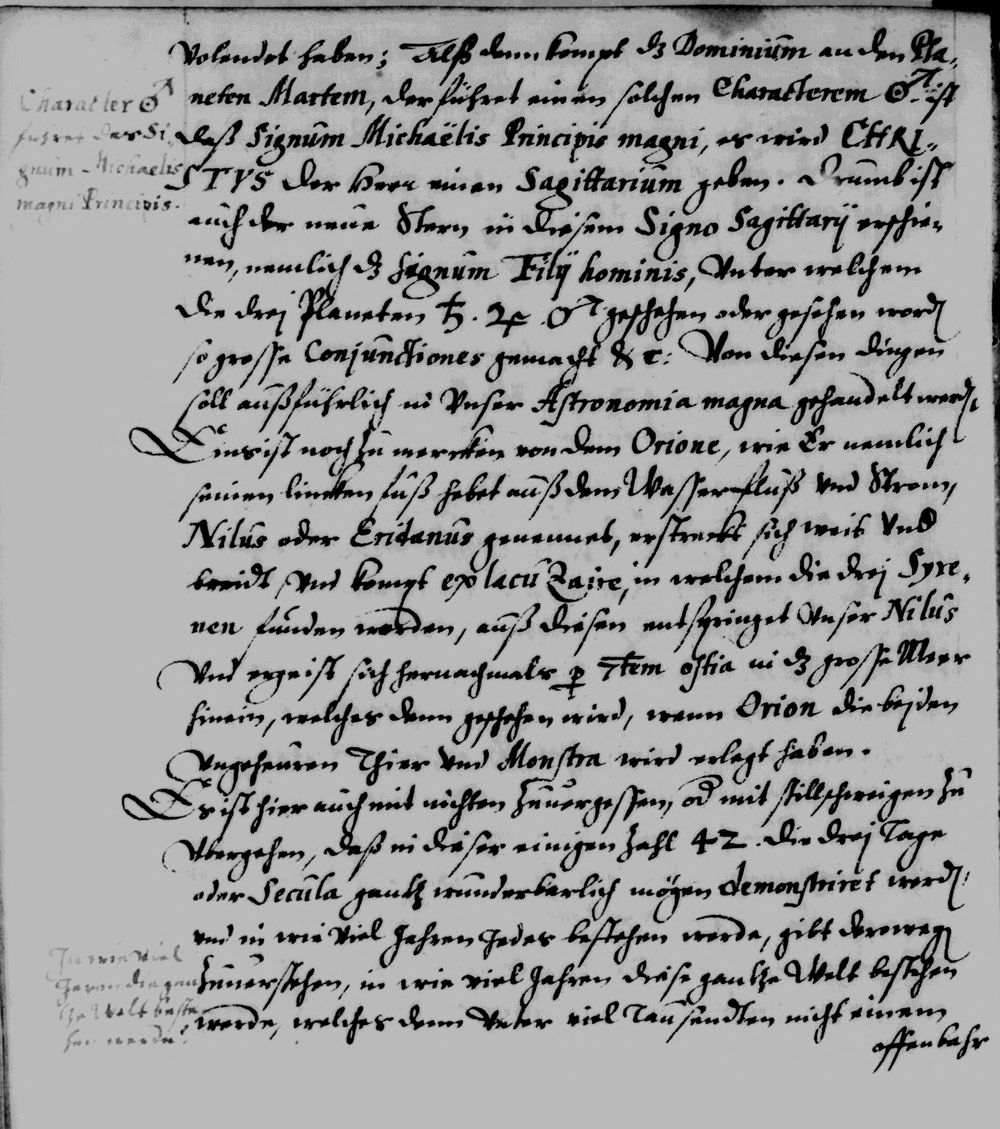 volendet haben; Alß dann kompt dz Dominium an den Pla-
neten Martem, der führet einen solchen Characterem ♂. ist
Character ♂
führet das Si-
gnum Michaelis
magni Principis.
daß Signum Michaëlis Principis magni, es wird CHRI-
STVS der Herr einen Sagittarium geben. Drumb ist
auch der neue Stern in diesem Signo Sagittarij erschie-
nen, nemlich dz Signum Filij hominis, Vnter welchem
die drej Planeten ♄. ♃. ♂ geschehen oder gesehen word
so grosse Conjunctiones gemacht &c: Von diesen dingen
soll außführlich in Vnser Astronomia magna gehandelt werd
Eins ist noch zu mercken von dem Orione, wie Er nemlich
seinen lincken fuß hebet auß dem Wasserfluß vnd Strom,
Nilus oder Eridanus genennet, erstreckt sich weit Vnd
breidt, Vnd kompt ex lacu Zaire, in welchem die drej Syre-
nen funden werden, auß diesen entspringet Vnser Nilus
Vnd ergeist sich hernachmals p 7tem ostia in dz grosse Meer
hinein, welches denn geschehen wird, wenn Orion die bejden
Vngeheuren Thier Vnd Monstra wird erlegt haben.
Es ist hier auch mit nichten zuuergessen, od mit stillschweigen zu
Vbergehen, daß in dieser einigen Zahl 42. die drej Tage
oder Secula gantz wunderbarlich mögen demonstriret werd
vnd in wie viel Jahren Jedes bestehen werde, gibt deroweg
In wie viel
Jaren die gan
tze Welt beste
hen werde?
Zuuerstehen, in wie viel Jahren diese gantze Welt bestehen
werde, welches denn Vnter viel Tausendten nicht einem
offenbahr